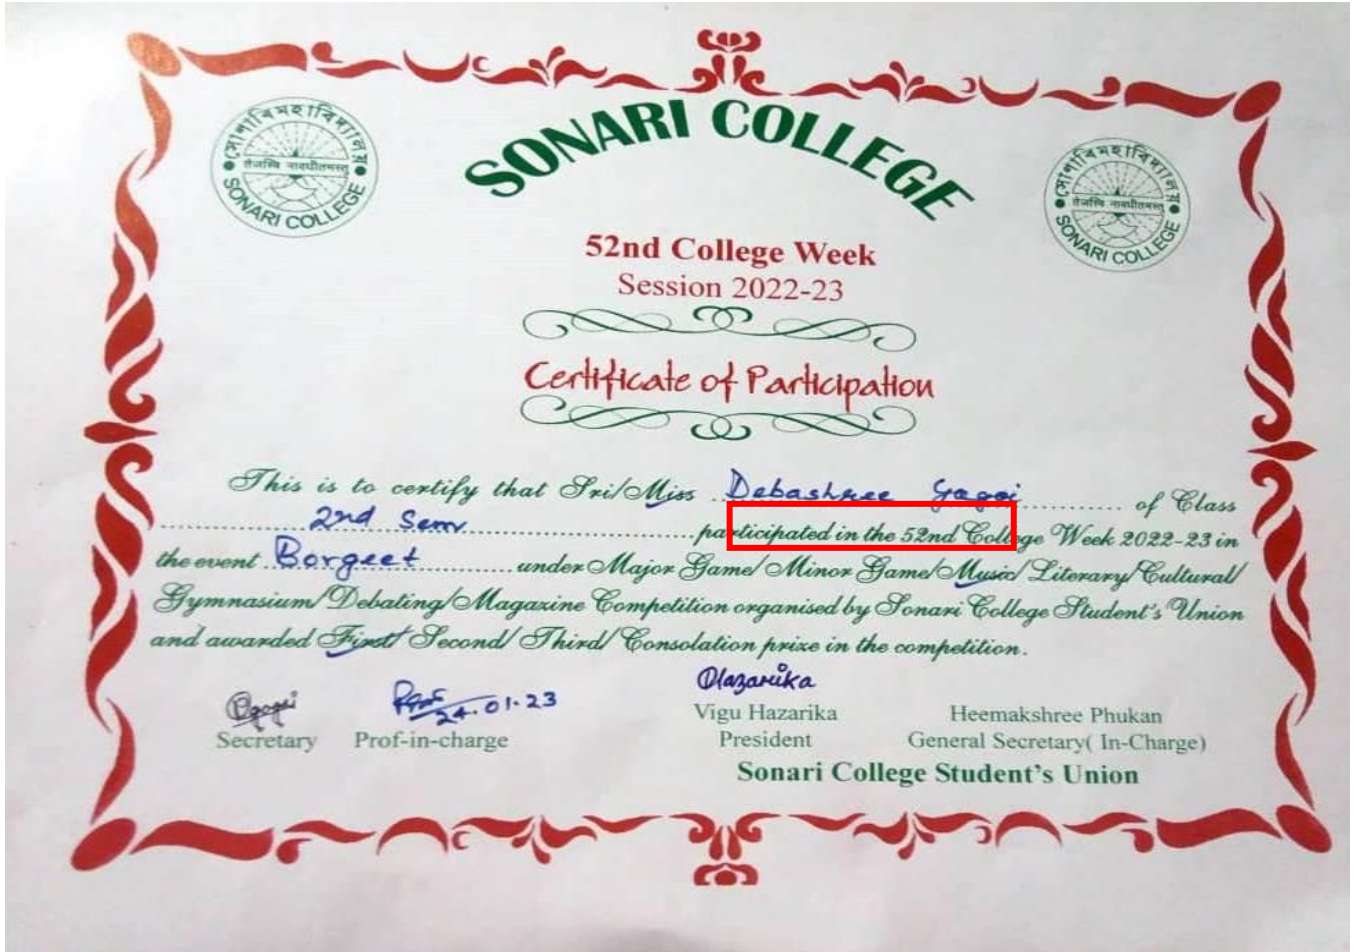 সোণাৰি মহাবিদ্যালয়
तेजस्वि नावधीतमस्तु
SONARI COLLEGE
SONARI COLLEGE
সোণাৰি মহাবিদ্যালয়
तेजस्वि नावधीतमस्तु
SONARI COLLEGE
52nd College Week
Session 2022-23
Certificate of Participation
This is to certify that Sri/Miss Debashree Gogoi of Class
2nd Sem participated in the 52nd College Week 2022-23 in
the event Borgeet under Major Game/ Minor Game/Music/Literary/Cultural/
Gymnasium/Debating/Magazine Competition organised by Sonari College Student's Union
and awarded First/ Second/ Third/ Consolation prize in the competition.
24.01.23
Hazarika
Vigu Hazarika Heemakshree Phukan
Secretary Prof-in-charge President General Secretary( In-Charge)
Sonari College Student's Union